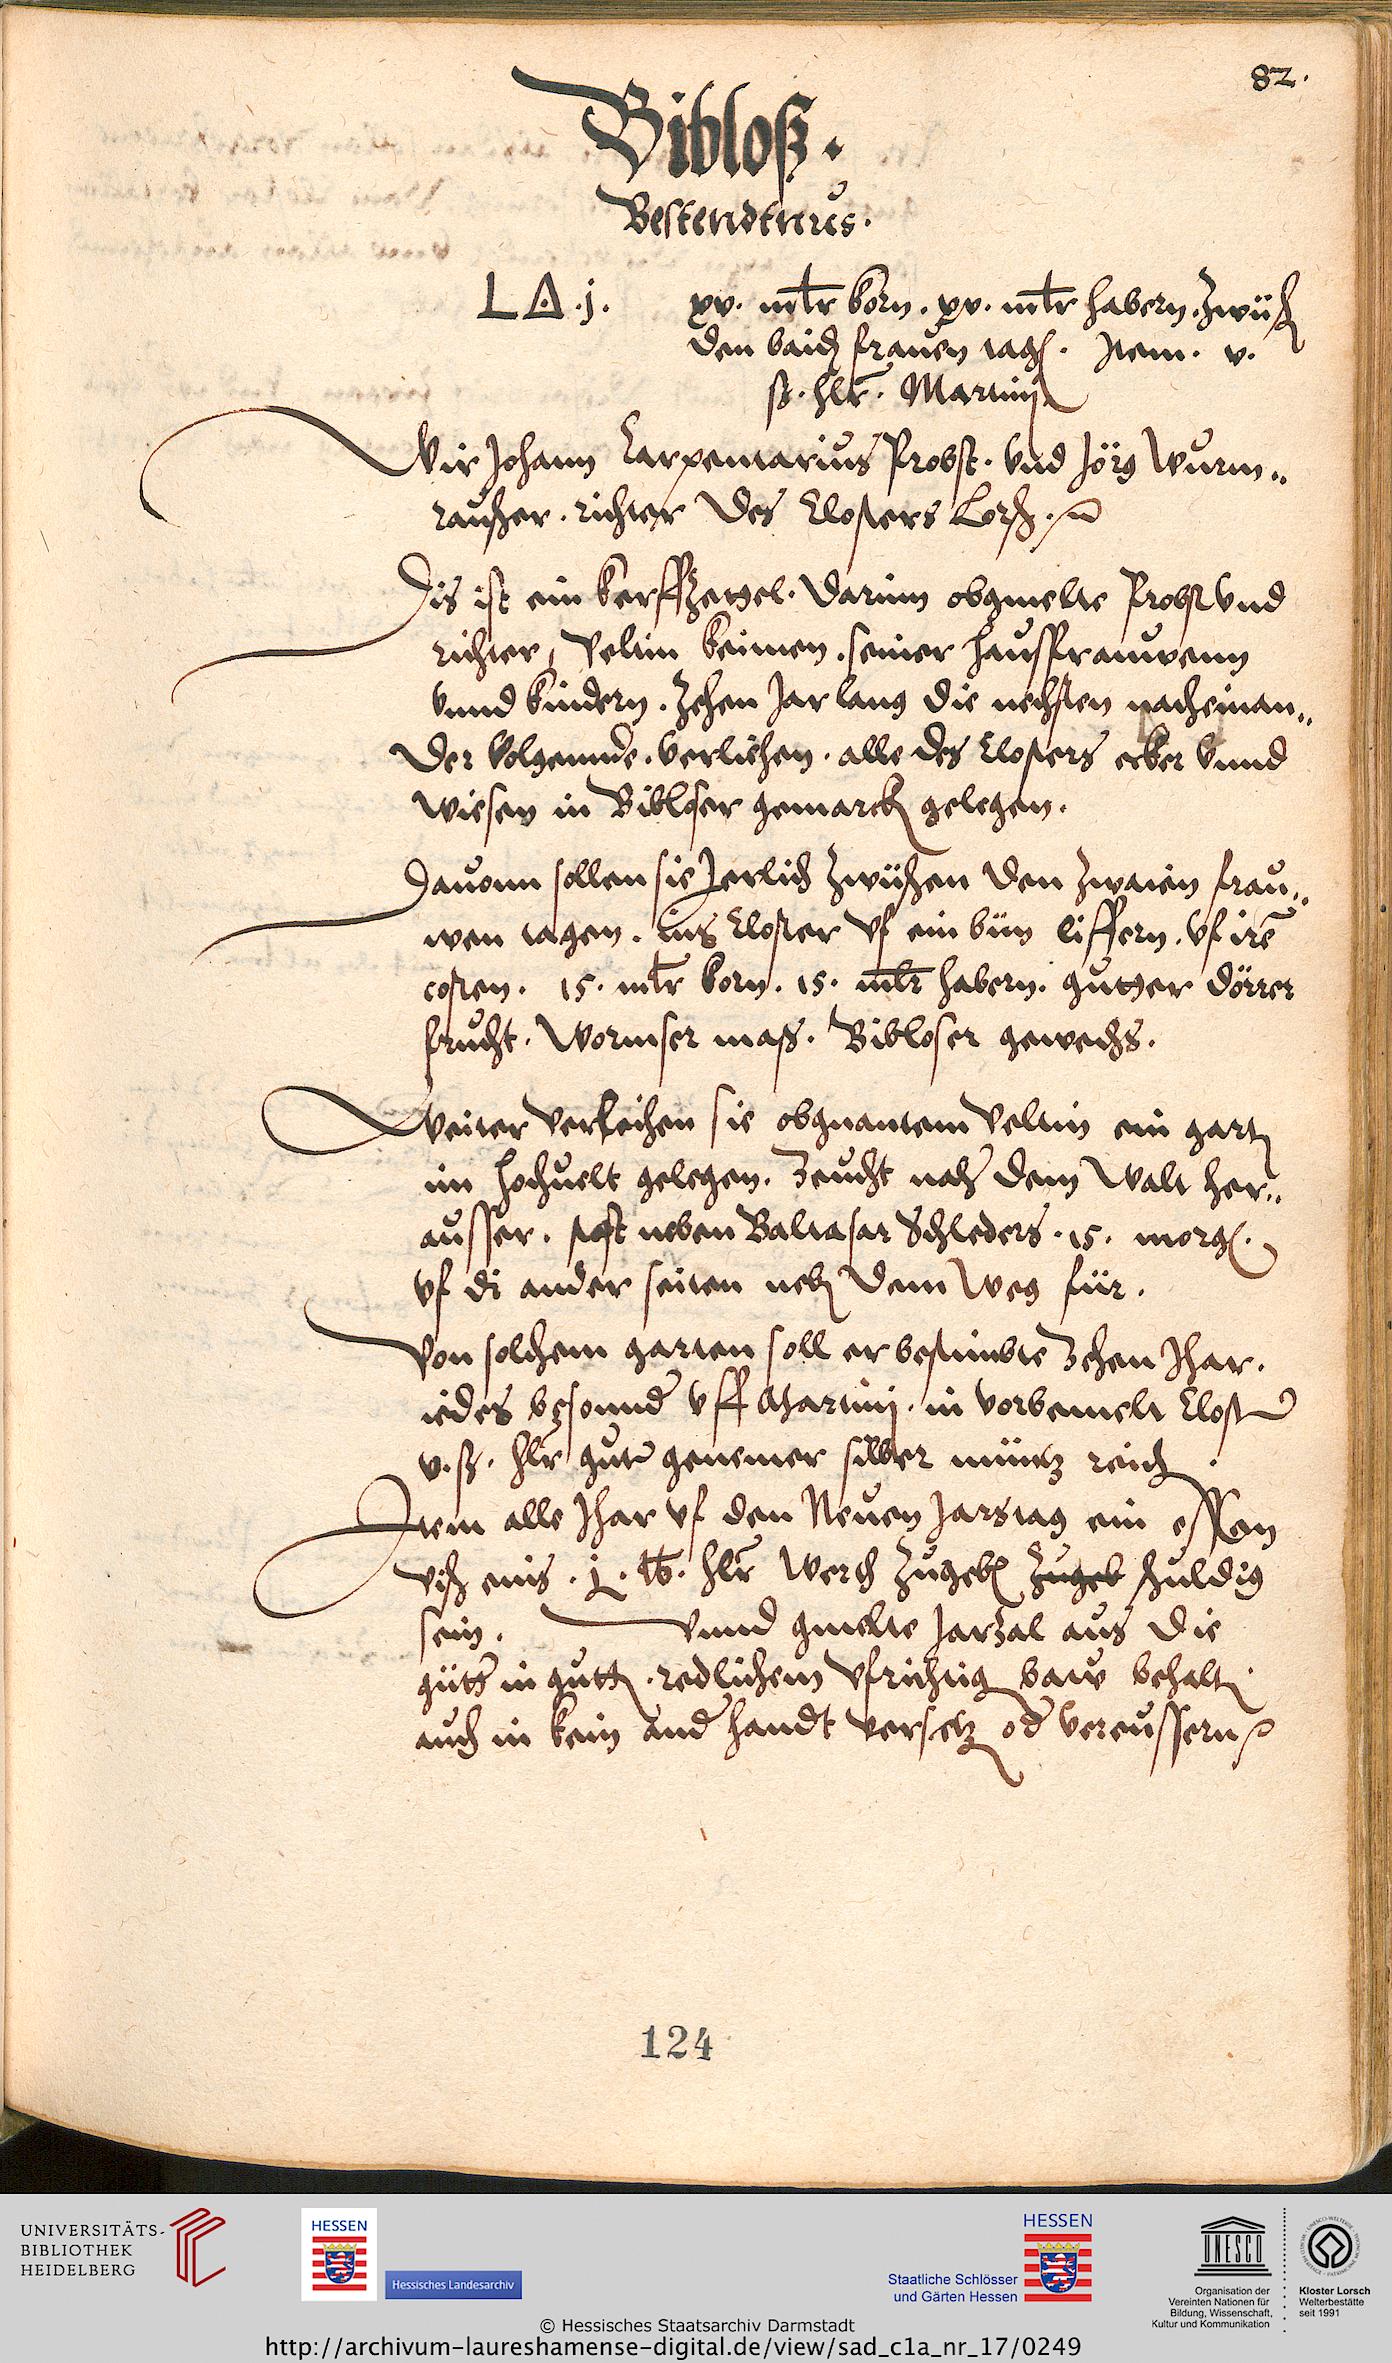 82.
Bibloß.
Bestendtnus.
L A .j. xv. mltr korn. xv. mltr habern. zwüsch
den baiden frauen tagen. Item. v.
ß. hlr. Martinj
Wir Johann Carpentarius Probst. vnd Jörg Wurm„
raußer. richter des Closters Lorsch.
Dis ist ein kerffzettel. darinn obgmelte Probst vnd
richter, Veltin keimen. seiner hausfrauwenn
vnnd kindern. zehen Jar lang die nechsten nacheinan„
der volgennde. verliehen. alle des Closters ecker vnnd
wiesen in Bibloser gemarck gelegen.
Dauonn sollen sie Jerlich zwüschen den zwaien frau„
wen tagen. ins Closter vf ein bün liffern. vf ire
costen. 15. mltr korn. 15. mltr habern. gutter dörrer
frucht. Wormser maß. Bibloser gewechs.
Weiter verleihen sie obgnantem Veltin ein garten
im hochuelt gelegen. zeucht nach dem Walt her„
ausser. neben Baltasar Schleders. 15. morgen.
vf di ander seiten neben dem Weg für.
Von solchem garten soll er bestimbte zehen Jhar.
iedes besonnder vff Martinj. in vorbemelt Closter
v. ß. hlr guter genemer silber müntz reichen.
Item alle Jhar vf den Neuen Jarstag ein essen
visch eins . j. lb. hlr werth zugeben zugeb schuldig
sein. Vnnd gmelte Jarzal aus die
gütter in gutten. redlichem vfrichtig bauw behalten.
auch in kein ander handt versetzen oder vereussern
124
UNIVERSITÄTS-
BIBLIOTHEK
HEIDELBERG
HESSEN
Hessisches Landesarchiv
HESSEN
Staatliche Schlösser
und Gärten Hessen
UNESCO
Organisation der
Vereinten Nationen für
Bildung, Wissenschaft,
Kultur und Kommunikation
Kloster Lorsch
Welterbestätte
seit 1991
© Hessisches Staatsarchiv Darmstadt
http://archivum-laureshamense-digital.de/view/sad_c1a_nr_17/0249